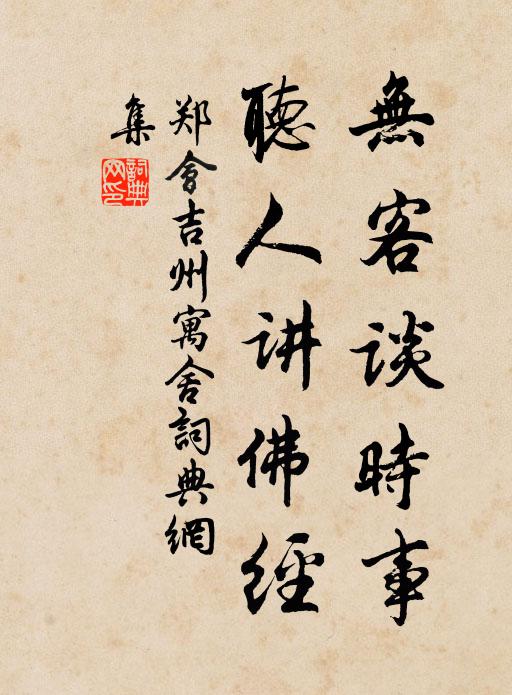 無客談時事
聽人讲佛經
郑會吉州寓舍詞典網
集
詞典
网印